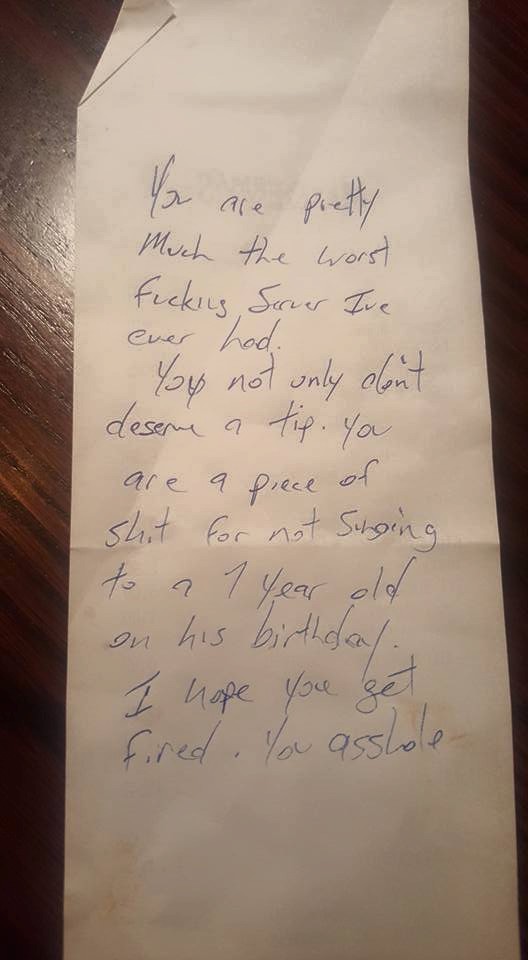 You are pretty
Much the worst
fucking Server Ive
ever had.
You not only don't
deserve a tip. You
are a piece of
shit for not Singing
to a 1 year old
on his birthday.
I hope you get
fired. You asshole